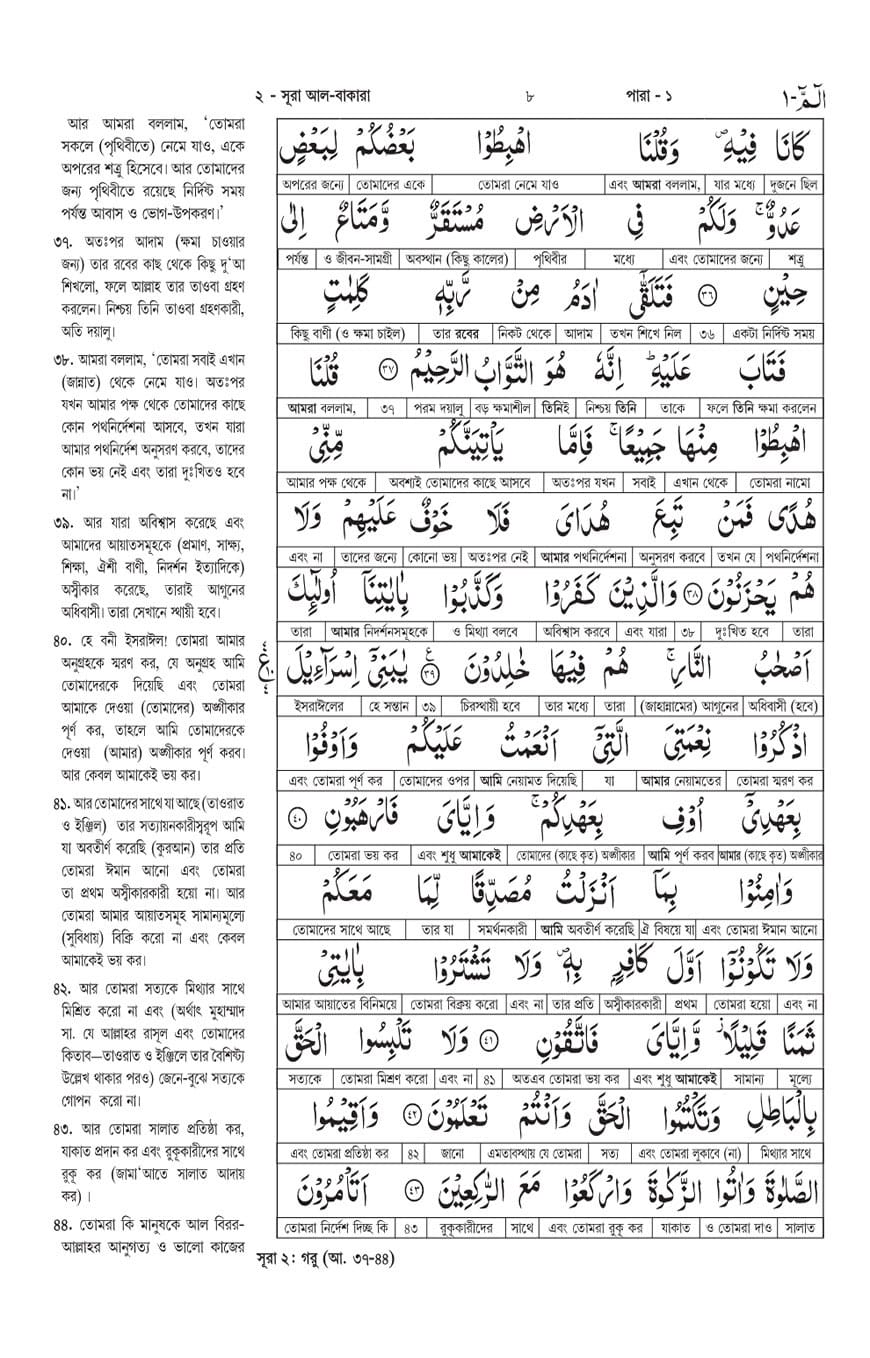 ২ - সূরা আল-বাকারা
৮
পারা - ১
الٓمّٓ-١
আর আমরা বললাম, ‘তোমরা
সকলে (পৃথিবীতে) নেমে যাও, একে
অপরের শত্রু হিসেবে। আর তোমাদের
জন্য পৃথিবীতে রয়েছে নির্দিষ্ট সময়
পর্যন্ত আবাস ও ভোগ-উপকরণ।’
৩৭. অতঃপর আদাম (ক্ষমা চাওয়ার
জন্য) তার রবের কাছ থেকে কিছু দু‘আ
শিখলো, ফলে আল্লাহ তার তাওবা গ্রহণ
করলেন। নিশ্চয় তিনি তাওবা গ্রহণকারী,
অতি দয়ালু।
৩৮. আমরা বললাম, ‘তোমরা সবাই এখান
(জান্নাত) থেকে নেমে যাও। অতঃপর
যখন আমার পক্ষ থেকে তোমাদের কাছে
কোন পথনির্দেশনা আসবে, তখন যারা
আমার পথনির্দেশ অনুসরণ করবে, তাদের
কোন ভয় নেই এবং তারা দুঃখিতও হবে
না।’
৩৯. আর যারা অবিশ্বাস করেছে এবং
আমাদের আয়াতসমূহকে (প্রমাণ, সাক্ষ্য,
শিক্ষা, ঐশী বাণী, নিদর্শন ইত্যাদিকে)
অস্বীকার করেছে, তারাই আগুনের
অধিবাসী। তারা সেখানে স্থায়ী হবে।
৪০. হে বনী ইসরাঈল! তোমরা আমার
অনুগ্রহকে স্মরণ কর, যে অনুগ্রহ আমি
তোমাদেরকে দিয়েছি এবং তোমরা
আমাকে দেওয়া (তোমাদের) অঙ্গীকার
পূর্ণ কর, তাহলে আমি তোমাদেরকে
দেওয়া (আমার) অঙ্গীকার পূর্ণ করব।
আর কেবল আমাকেই ভয় কর।
৪১. আর তোমাদের সাথে যা আছে (তাওরাত
ও ইঞ্জিল) তার সত্যায়নকারীস্বরূপ আমি
যা অবতীর্ণ করেছি (কুরআন) তার প্রতি
তোমরা ঈমান আনো এবং তোমরা
তা প্রথম অস্বীকারকারী হয়ো না। আর
তোমরা আমার আয়াতসমূহ সামান্যমূল্যে
(সুবিধায়) বিক্রি করো না এবং কেবল
আমাকেই ভয় কর।
৪২. আর তোমরা সত্যকে মিথ্যার সাথে
মিশ্রিত করো না এবং (অর্থাৎ মুহাম্মাদ
সা. যে আল্লাহর রাসূল এবং তোমাদের
কিতাব—তাওরাত ও ইঞ্জিলে তার বৈশিষ্ট্য
উল্লেখ থাকার পরও) জেনে-বুঝে সত্যকে
গোপন করো না।
৪৩. আর তোমরা সালাত প্রতিষ্ঠা কর,
যাকাত প্রদান কর এবং রুকূকারীদের সাথে
রুকূ কর (জামা‘আতে সালাত আদায়
কর) ।
৪৪. তোমরা কি মানুষকে আল বিরর-
আল্লাহর আনুগত্য ও ভালো কাজের
كَانَا فِيْهِ ۪ وَقُلْنَا اهْبِطُوْا بَعْضُكُمْ لِبَعْضٍ
দুজনে ছিল | যার মধ্যে | এবং আমরা বললাম, | তোমরা নেমে যাও | তোমাদের একে | অপরের জন্যে
عَدُوٌّ ۚ وَلَكُمْ فِي الْاَرْضِ مُسْتَقَرٌّ وَّمَتَاعٌ اِلٰى
শত্রু | এবং তোমাদের জন্যে | মধ্যে | পৃথিবীর | অবস্থান (কিছু কালের) | ও জীবন-সামগ্রী | পর্যন্ত
حِيْنٍ ۝٣٦ فَتَلَقّٰٓى اٰدَمُ مِنْ رَّبِّهٖ كَلِمٰتٍ
একটা নির্দিষ্ট সময় | ৩৬ | তখন শিখে নিল | আদাম | নিকট থেকে | তার রবের | কিছু বাণী (ও ক্ষমা চাইল)
فَتَابَ عَلَيْهِ ؕ اِنَّهٗ هُوَ التَّوَّابُ الرَّحِيْمُ ۝٣٧ قُلْنَا
ফলে তিনি ক্ষমা করলেন | তাকে | নিশ্চয় তিনি | তিনিই | বড় ক্ষমাশীল | পরম দয়ালু | ৩৭ | আমরা বললাম,
اهْبِطُوْا مِنْهَا جَمِيْعًا ۚ فَاِمَّا يَاْتِيَنَّكُمْ مِّنِّيْ
তোমরা নামো | এখান থেকে | সবাই | অতঃপর যখন | অবশ্যই তোমাদের কাছে আসবে | আমার পক্ষ থেকে
هُدًى فَمَنْ تَبِعَ هُدَايَ فَلَا خَوْفٌ عَلَيْهِمْ وَلَا
পথনির্দেশনা | তখন যে | অনুসরণ করবে | আমার পথনির্দেশনা | অতঃপর নেই | কোনো ভয় | তাদের জন্যে | এবং না
هُمْ يَحْزَنُوْنَ ۝٣٨ وَالَّذِيْنَ كَفَرُوْا وَكَذَّبُوْا بِاٰيٰتِنَآ اُولٰٓئِكَ
তারা | দুঃখিত হবে | ৩৮ | এবং যারা | অবিশ্বাস করবে | ও মিথ্যা বলবে | আমার নিদর্শনসমূহকে | তারা
اَصْحٰبُ النَّارِ ۚ هُمْ فِيْهَا خٰلِدُوْنَ ۝٣٩ يٰبَنِيْٓ اِسْرَآءِيْلَ
অধিবাসী (হবে) | (জাহান্নামের) আগুনের | তারা | তার মধ্যে | চিরস্থায়ী হবে | ৩৯ | হে সন্তান | ইসরাঈলের
اذْكُرُوْا نِعْمَتِيَ الَّتِيْٓ اَنْعَمْتُ عَلَيْكُمْ وَاَوْفُوْا
তোমরা স্মরণ কর | আমার নেয়ামতের | যা | আমি নেয়ামত দিয়েছি | তোমাদের ওপর | এবং তোমরা পূর্ণ কর
بِعَهْدِيْٓ اُوْفِ بِعَهْدِكُمْ ۚ وَاِيَّايَ فَارْهَبُوْنِ ۝٤٠
আমার (কাছে কৃত) অঙ্গীকার | আমি পূর্ণ করব | তোমাদের (কাছে কৃত) অঙ্গীকার | এবং শুধু আমাকেই | তোমরা ভয় কর | ৪০
وَاٰمِنُوْا بِمَآ اَنْزَلْتُ مُصَدِّقًا لِّمَا مَعَكُمْ
এবং তোমরা ঈমান আনো | ঐ বিষয়ে যা | আমি অবতীর্ণ করেছি | সমর্থনকারী | তার যা | তোমাদের সাথে আছে
وَلَا تَكُوْنُوْٓا اَوَّلَ كَافِرٍۭ بِهٖ ۪ وَلَا تَشْتَرُوْا بِاٰيٰتِيْ
এবং না | তোমরা হয়ো | প্রথম | অস্বীকারকারী | তার প্রতি | এবং না | তোমরা বিক্রয় করো | আমার আয়াতের বিনিময়ে
ثَمَنًا قَلِيْلًا ۡ وَّاِيَّايَ فَاتَّقُوْنِ ۝٤١ وَلَا تَلْبِسُوا الْحَقَّ
মূল্যে | সামান্য | এবং শুধু আমাকেই | অতএব তোমরা ভয় কর | ৪১ | এবং না | তোমরা মিশ্রণ করো | সত্যকে
بِالْبَاطِلِ وَتَكْتُمُوا الْحَقَّ وَاَنْتُمْ تَعْلَمُوْنَ ۝٤٢ وَاَقِيْمُوا
মিথ্যার সাথে | এবং তোমরা লুকাবে (না) | সত্য | এমতাবস্থায় যে তোমরা | জানো | ৪২ | এবং তোমরা প্রতিষ্ঠা কর
الصَّلٰوةَ وَاٰتُوا الزَّكٰوةَ وَارْكَعُوْا مَعَ الرّٰكِعِيْنَ ۝٤٣ اَتَاْمُرُوْنَ
সালাত | ও তোমরা দাও | যাকাত | এবং তোমরা রুকূ কর | সাথে | রুকূকারীদের | ৪৩ | তোমরা নির্দেশ দিচ্ছ কি
সূরা ২: গরু (আ. ৩৭-৪৪)